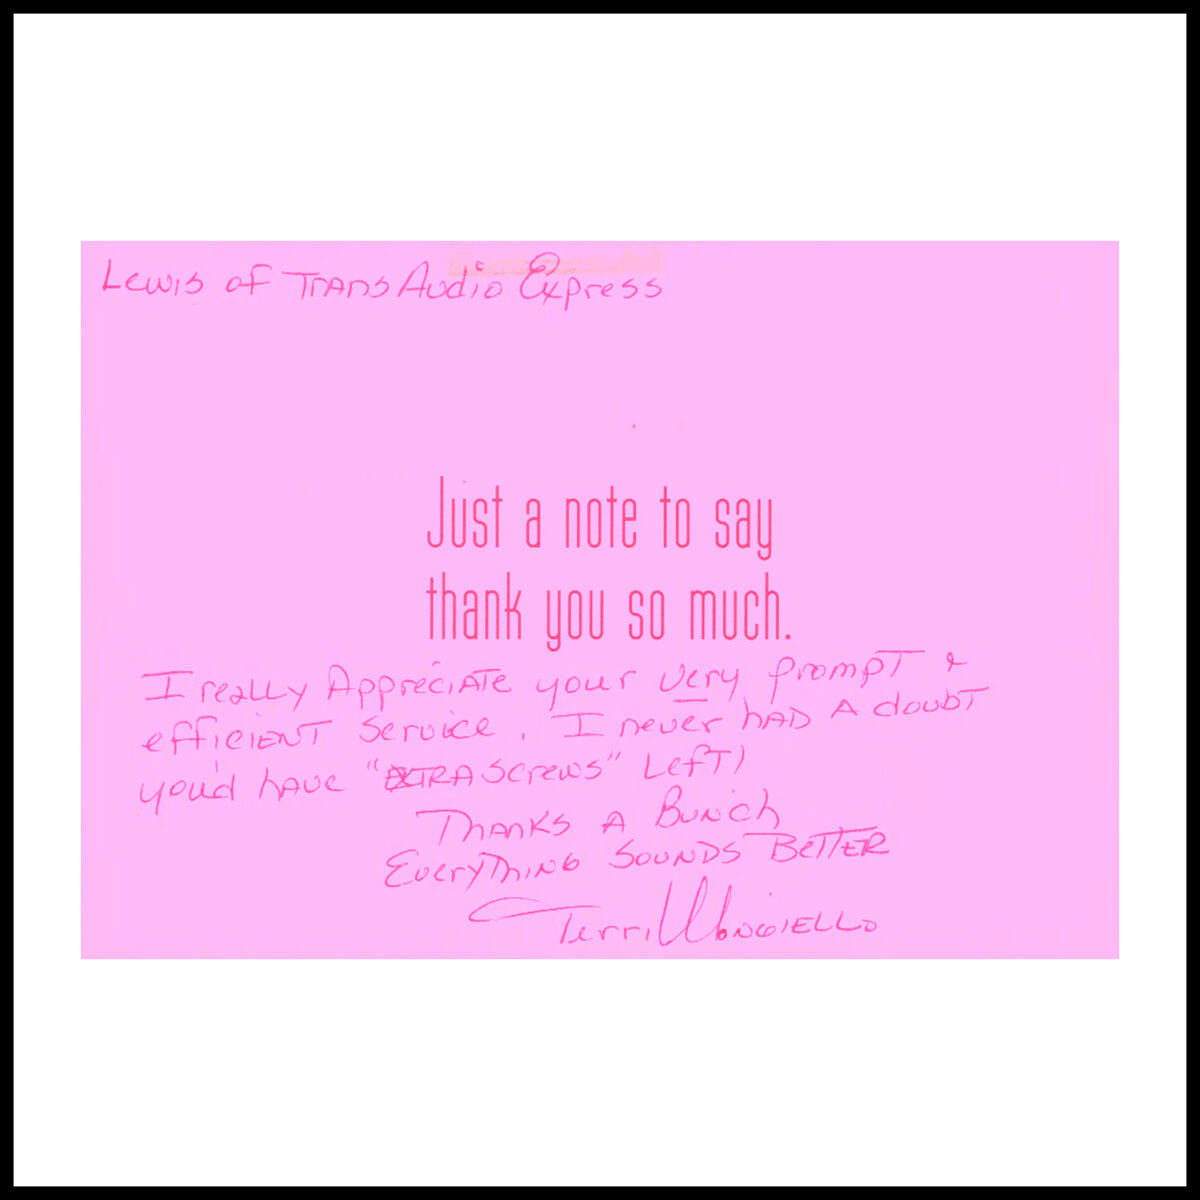 Lewis of TransAudio Express
Just a note to say
thank you so much.
I really Appreciate your very prompt &
efficient service. I never had a doubt
you'd have "EXTRA screws" left!
Thanks a Bunch
Everything sounds Better
Terri Mongiello